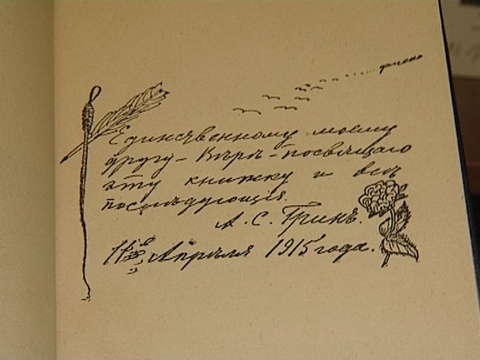 Единственному моему
другу – Вѣрѣ – посвящаю
эту книжку и всѣ
послѣдующія.
А. С. Гринъ.
11 Апрѣля 1915 года.